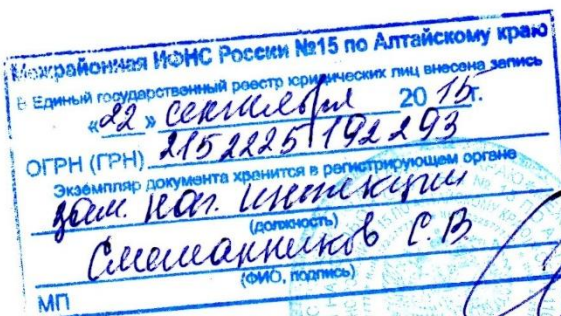 Межрайонная ИФНС России №15 по Алтайскому краю
В Единый государственный реестр юридических лиц внесена запись
«22» сентября 2015г.
ОГРН (ГРН) 2152225192293
Экземпляр документа хранится в регистрирующем органе
зам. нач. инспекции
(должность)
С.В.
(ФИО, подпись)
МП